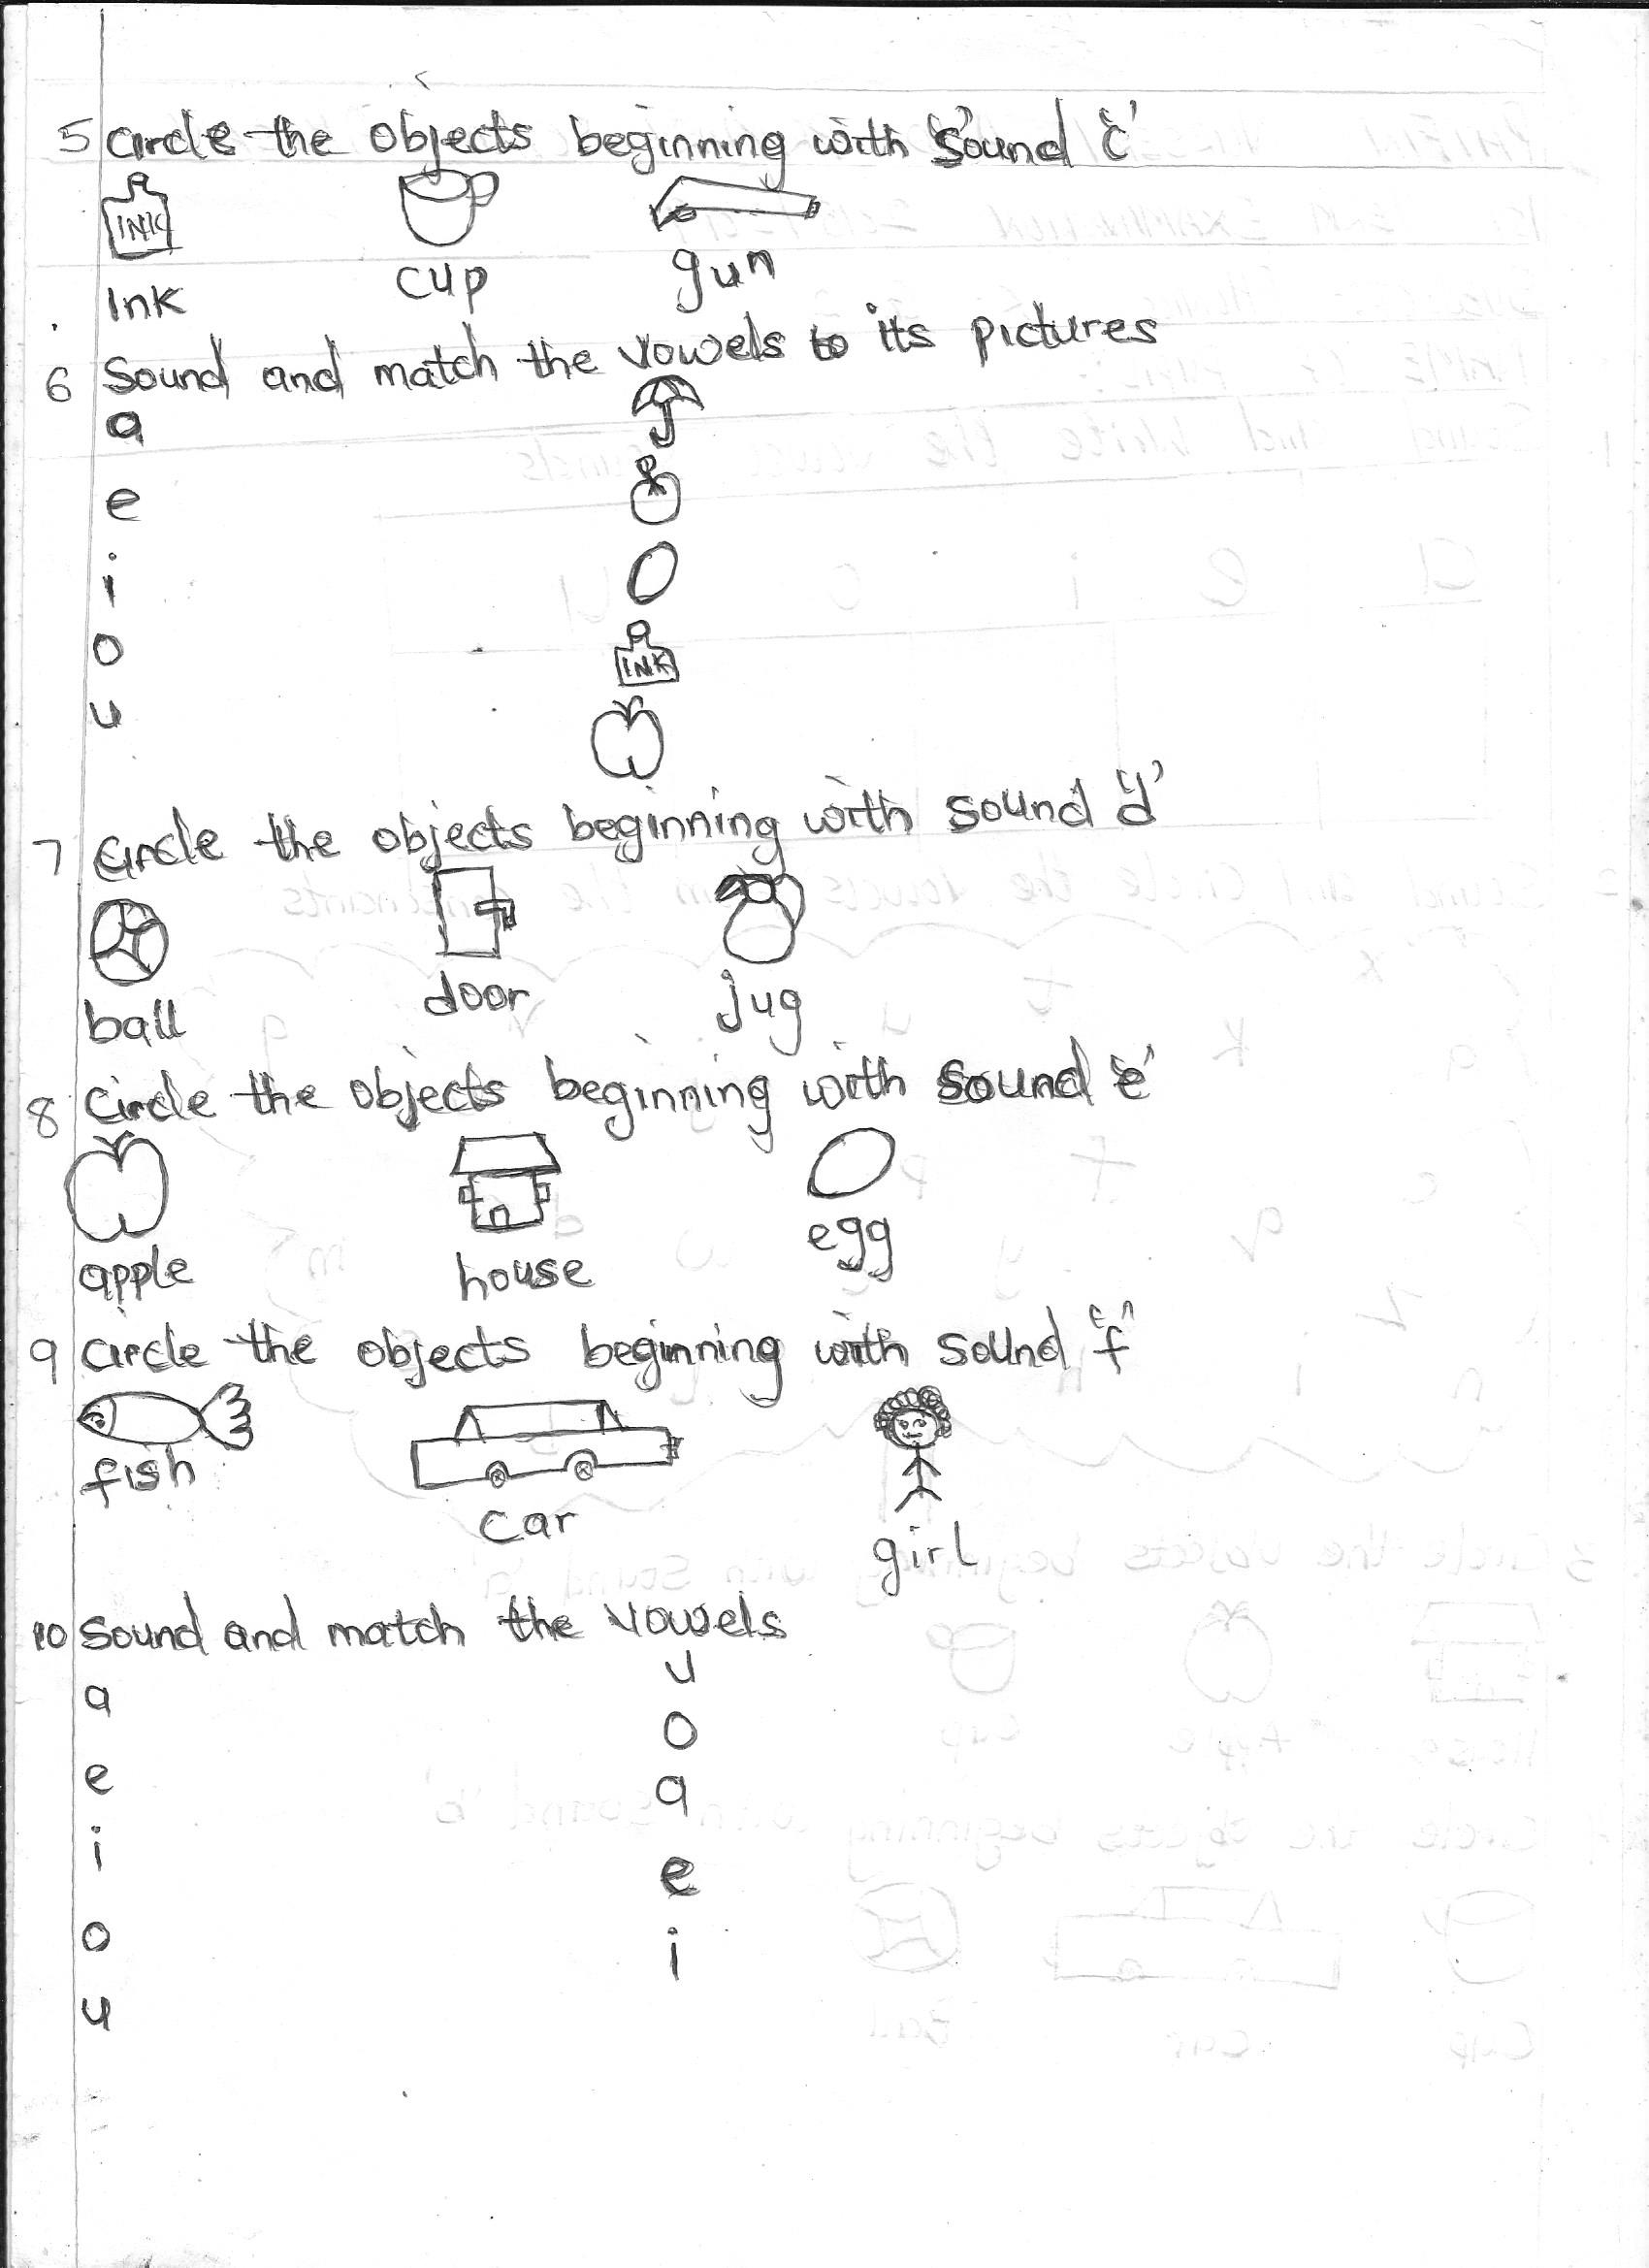 5 Circle the objects beginning with "sound "c"
INK
Ink cup gun
6 Sound and match the vowels to its pictures
a
e
i
o
INK
u
7 Circle the objects beginning with sound "d"
ball door jug
8 Circle the objects beginning with sound "e"
apple house egg
9 Circle the objects beginning with sound "f"
fish car girl
10 Sound and match the vowels
a u
e o
i a
o e
u i